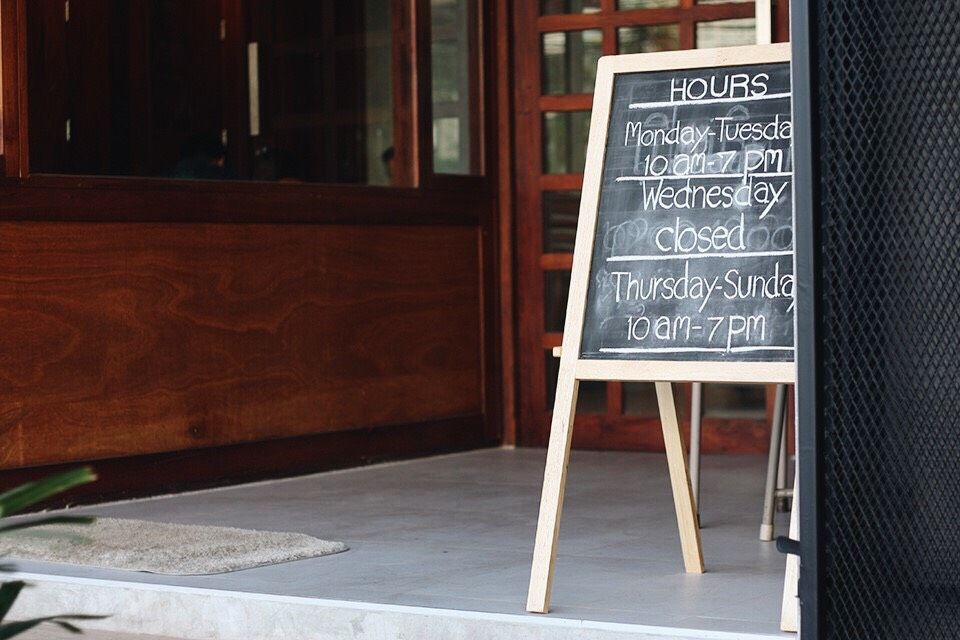 HOURS
Monday-Tuesda
10 am-7 pm
Wednesday
closed
Thursday-Sunda
10 am-7 pm